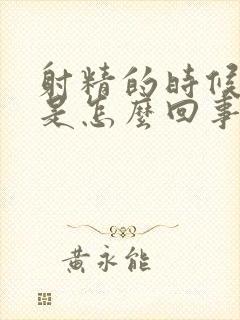 射精的時候
是怎麼回事
黃永能